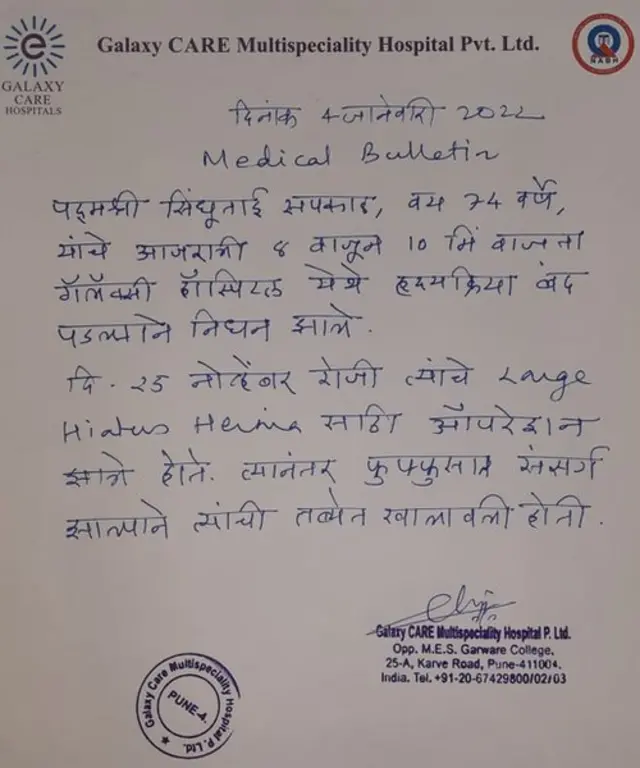 GALAXY
CARE
HOSPITALS
Galaxy CARE Multispeciality Hospital Pvt. Ltd.
NABH
दिनांक 4 जानेवारी 2022
Medical Bulletin
पद्मश्री सिंधूताई सपकाळ, वय 74 वर्षे,
यांचे आजरात्री 8 वाजून 10 मिं वाजता
गॅलॅक्सी हॉस्पिटल येथे हृदयक्रिया बंद
पडल्याने निधन झाले.
दि. 25 नोव्हेंबर रोजी त्यांचे Large
Hiatus Hernia साठी ऑपरेशन
झाले होते. त्यानंतर फुफ्फुसात संसर्ग
झाल्याने त्यांची तब्येत खालावली होती.
Galaxy CARE Multispeciality Hospital P. Ltd.
Opp. M.E.S. Garware College,
25-A, Karve Road, Pune-411004.
India. Tel. +91-20-67429800/02/03
Galaxy Care Multispeciality Hospital P. Ltd.
PUNE-4.